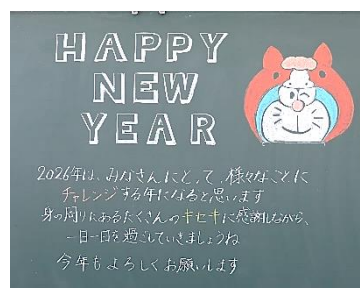 HAPPY
NEW
YEAR
2026年は、みなさんにとって、様々なことに
チャレンジする年になると思います
身の周りにあるたくさんのキセキに感謝しながら、
一日一日を過ごしていきましょうね
今年もよろしくお願いします